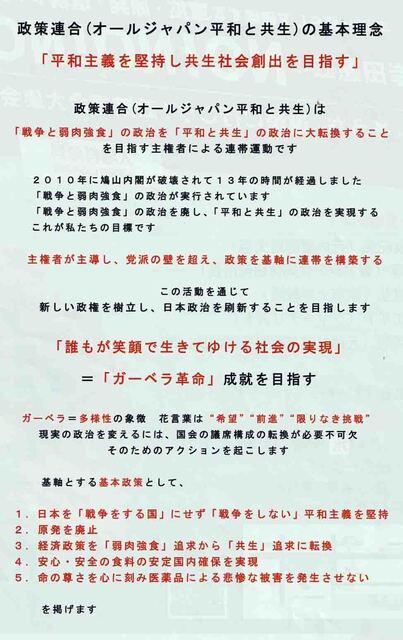 政策連合(オールジャパン平和と共生)の基本理念
「平和主義を堅持し共生社会創出を目指す」
政策連合(オールジャパン平和と共生)は
「戦争と弱肉強食」の政治を「平和と共生」の政治に大転換すること
を目指す主権者による連帯運動です
２０１０年に鳩山内閣が破壊されて１３年の時間が経過しました
「戦争と弱肉強食」の政治が実行されています
「戦争と弱肉強食」の政治を廃し、「平和と共生」の政治を実現する
これが私たちの目標です
主権者が主導し、党派の壁を超え、政策を基軸に連帯を構築する
この活動を通じて
新しい政権を樹立し、日本政治を刷新することを目指します
「誰もが笑顔で生きてゆける社会の実現」
＝「ガーベラ革命」成就を目指す
ガーベラ＝多様性の象徴　花言葉は“希望”“前進”“限りなき挑戦”
現実の政治を変えるには、国会の議席構成の転換が必要不可欠
そのためのアクションを起こします
基軸とする基本政策として、
１．日本を「戦争をする国」にせず「戦争をしない」平和主義を堅持
２．原発を廃止
３．経済政策を「弱肉強食」追求から「共生」追求に転換
４．安心・安全の食料の安定国内確保を実現
５．命の尊さを心に刻み医薬品による悲惨な被害を発生させない
を掲げます